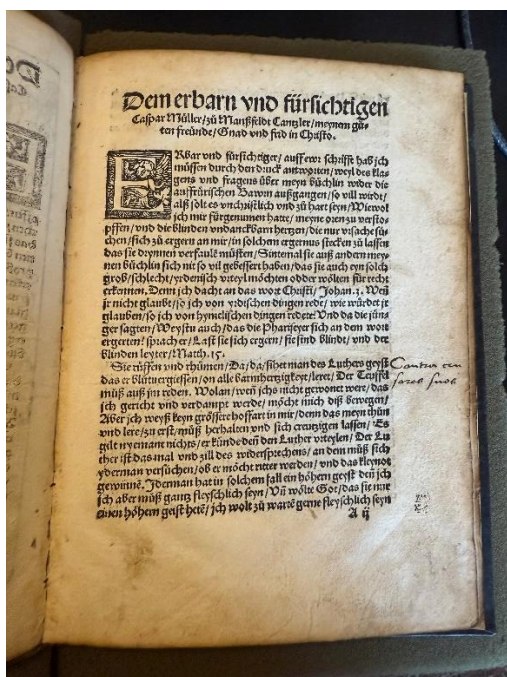 Dem erbarn vnd fürsichtigen
Caspar Müller/zů Manßfeldt Cantzler/meynem gů-
ten freünde/Gnad vnd frid in Christo.
ERbar vnd fürsichtiger/auff ewr schrifft hab ich
müssen durch den druck antworten/weyl des kla-
gens vnd fragens über meyn büchlin wider die
auffrürischen Bawrn außgangen/so vill wirdt/
alß solt es vnchristlich vnd zů hart seyn/Wiewol
ich mir fürgenumen hatte/meyne oren zů versto-
pffen/vnd die blinden vndanckbarn hertzen/die nur vrsache sů-
chen/sich zů ergern an mir/in solchem ergernus stecken zů lassen
das sie drynnen verfaulē müsten/Sintemal sie auß andern mey-
nen büchlin sich nit so vil gebessert haben/das sie auch eyn solch
grob/schlecht/yrdenisch vrteyl möchten odder wölten für recht
erkennen. Denn ich dacht an das wort Christi/Johan.3. Weñ
jr nicht glaubt/so ich von yrdischen dingen rede/wie würdet jr
glauben/so ich von hymelischen dingen redete? Vnd da die jün-
ger sagten/Weystu auch/das die Phariseyer sich an dem wort
ergerten? sprach er/Laßt sie sich ergern/sie sind blindt/vnd der
blinden leyter/Matth.15.
Sie rüffen vnd rhümen/Da/da/sihet man des Luthers geyst
das er blůtuergiessen/on alle barmhertzigkeyt/leret/Der Teuffel
můß auß jm reden. Wolan/weñ ichs nicht gewonet were/das
ich gericht vnd verdampt werde/möcht mich diß bewegen/
Aber ich weyß keyn grössere hoffart in mir/denn das meyn thůn
vnd lere/zů erst/můß herhalten vnd sich creutzigen lassen/Es
gilt nyemant nichts/er künde deñ den Luther vrteylen/Der Lu
ther ist das mal vnd zill des widersprechens/an dem můß sich
yderman versůchen/ob er möcht ritter werden/vnd das kleynot
gewinnē. Jderman hat in solchem fall ein höhern geyst deñ ich
ich aber můß gantz fleyschlich seyn/Vñ wölte Got/das sie nur
einen höhern geist hetē/ich wolt zů warē gerne fleyschlich seyn
A ij